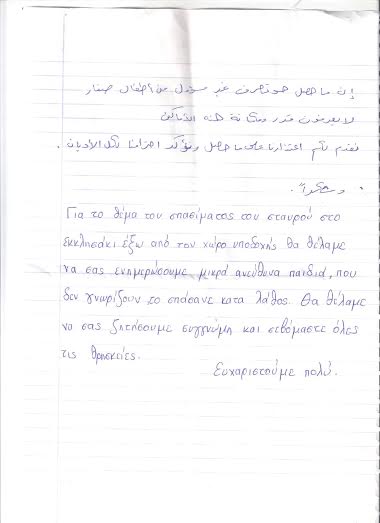 إن ما حصل هو تصرف غير مسؤول من أطفال صغار
لا يعرفون قدر ومكانة هذه الأماكن
نقدم لكم اعتذارنا على ما حصل ونؤكد احترامنا لكل الأديان.
وشكراً.
Για το θέμα του σπασίματος του σταυρού στο
εκκλησάκι έξω από τον χώρο υποδοχής θα θέλαμε
να σας ενημερώσουμε μικρά ανεύθυνα παιδιά, που
δεν γνωρίζουν το σπάσανε κατα λάθος. Θα θέλαμε
να σας ζητήσουμε συγγνώμη και σεβόμαστε όλες
τις θρησκείες.
Ευχαριστούμε πολύ.